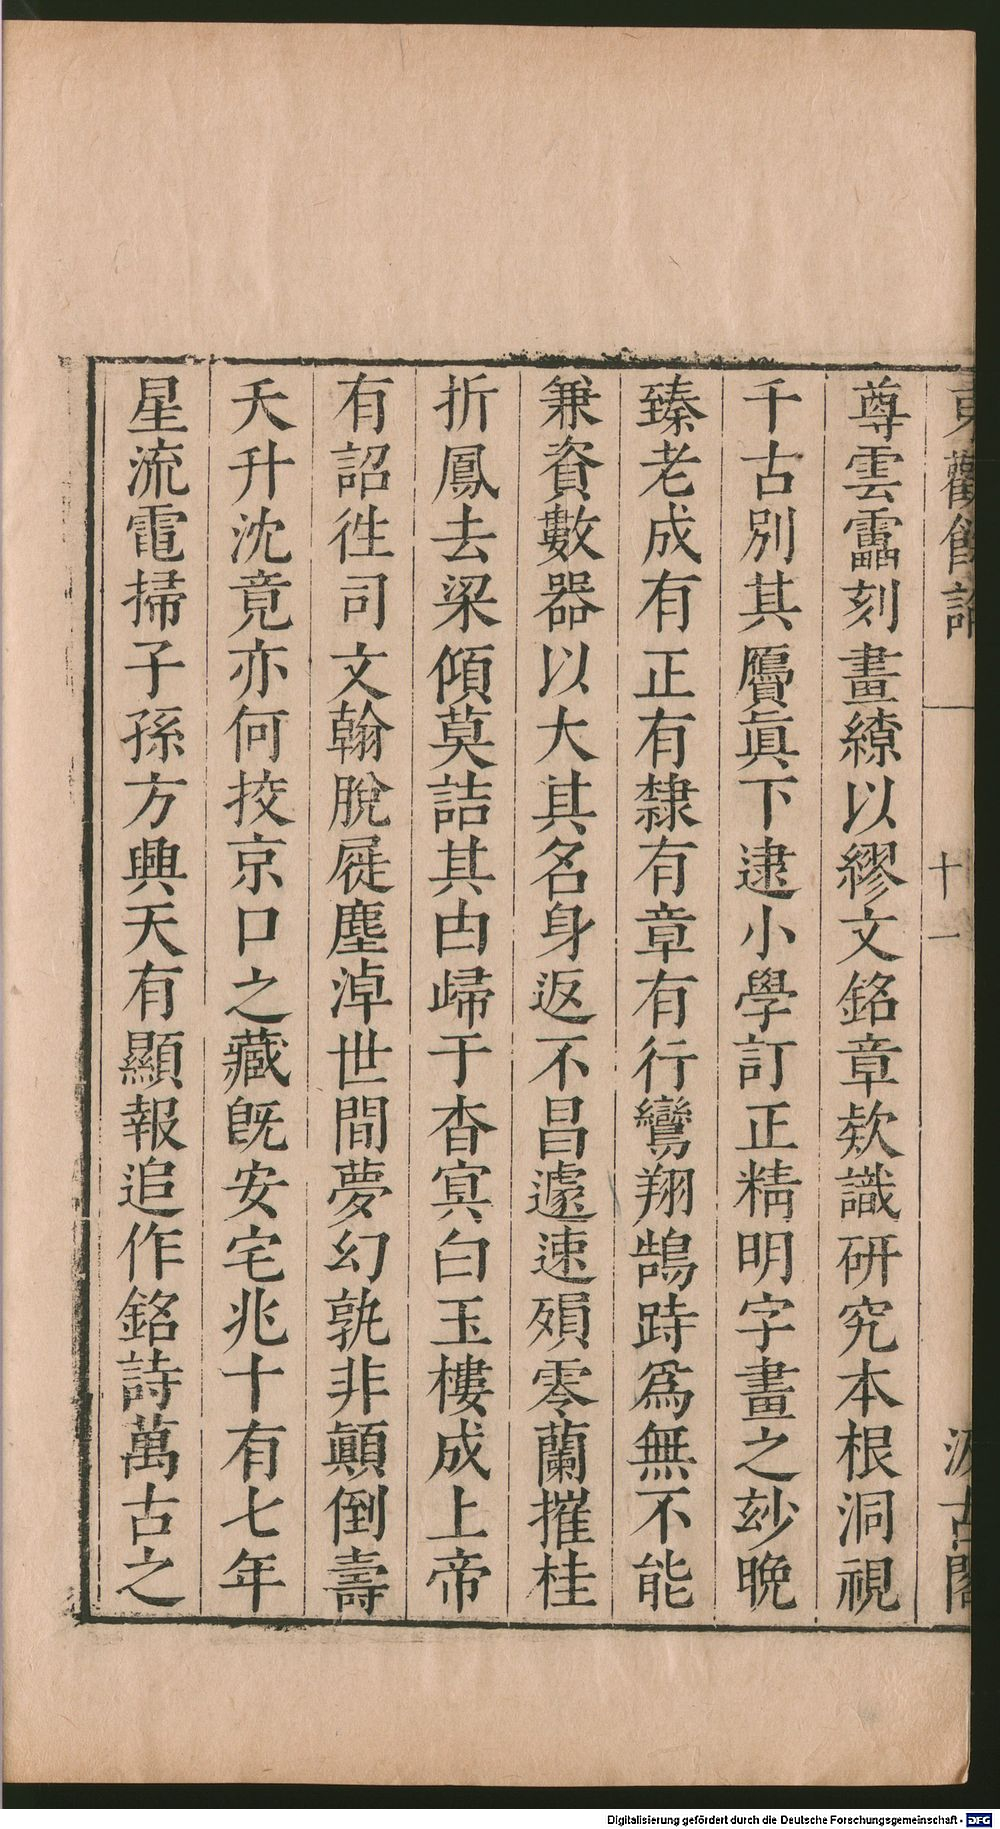 東觀餘論
十一
汲古閣
尊雲靁刻畫繚以繆文銘章欵識研究本根洞視
千古別其贗眞下逮小學訂正精明字畫之玅晚
臻老成有正有隸有章有行鸞翔鵠跱爲無不能
兼資數器以大其名身返不昌遽速殞零蘭摧桂
折鳳去梁傾莫詰其由歸于杳㝠白玉樓成上帝
有詔徃司文翰脫屣塵淖世間夢幻孰非顛倒壽
夭升沈竟亦何挍京口之藏旣安宅兆十有七年
星流電掃子孫方興天有顯報追作銘詩萬古之
Digitalisierung gefördert durch die Deutsche Forschungsgemeinschaft - DFG